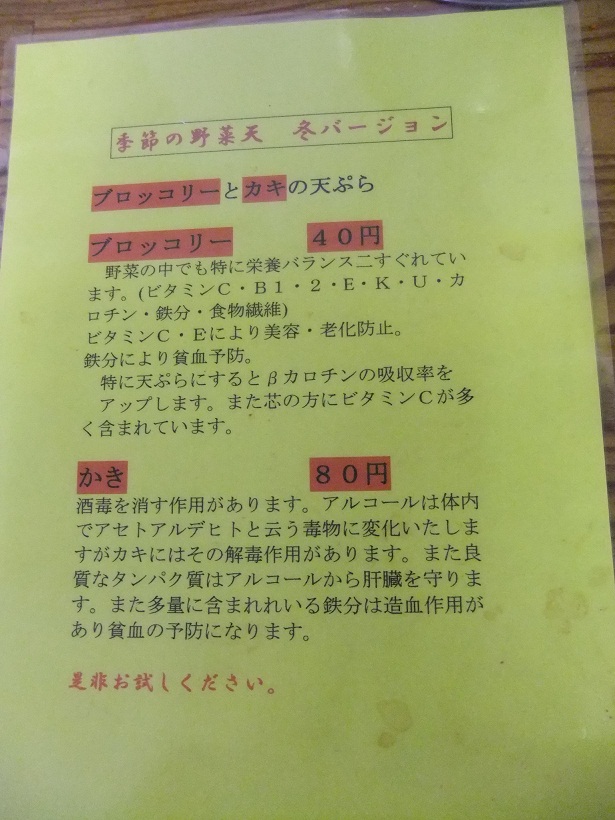 季節の野菜天　冬バージョン
ブロッコリーとカキの天ぷら
ブロッコリー　４０円
野菜の中でも特に栄養バランス二すぐれてい
ます。(ビタミンＣ・Ｂ１・２・Ｅ・Ｋ・Ｕ・カ
ロチン・鉄分・食物繊維)
ビタミンＣ・Ｅにより美容・老化防止。
鉄分により貧血予防。
特に天ぷらにするとβカロチンの吸収率を
アップします。また芯の方にビタミンＣが多
く含まれています。
かき　８０円
酒毒を消す作用があります。アルコールは体内
でアセトアルデヒトと云う毒物に変化いたしま
すがカキにはその解毒作用があります。また良
質なタンパク質はアルコールから肝臓を守りま
す。また多量に含まれれいる鉄分は造血作用が
あり貧血の予防になります。
是非お試しください。